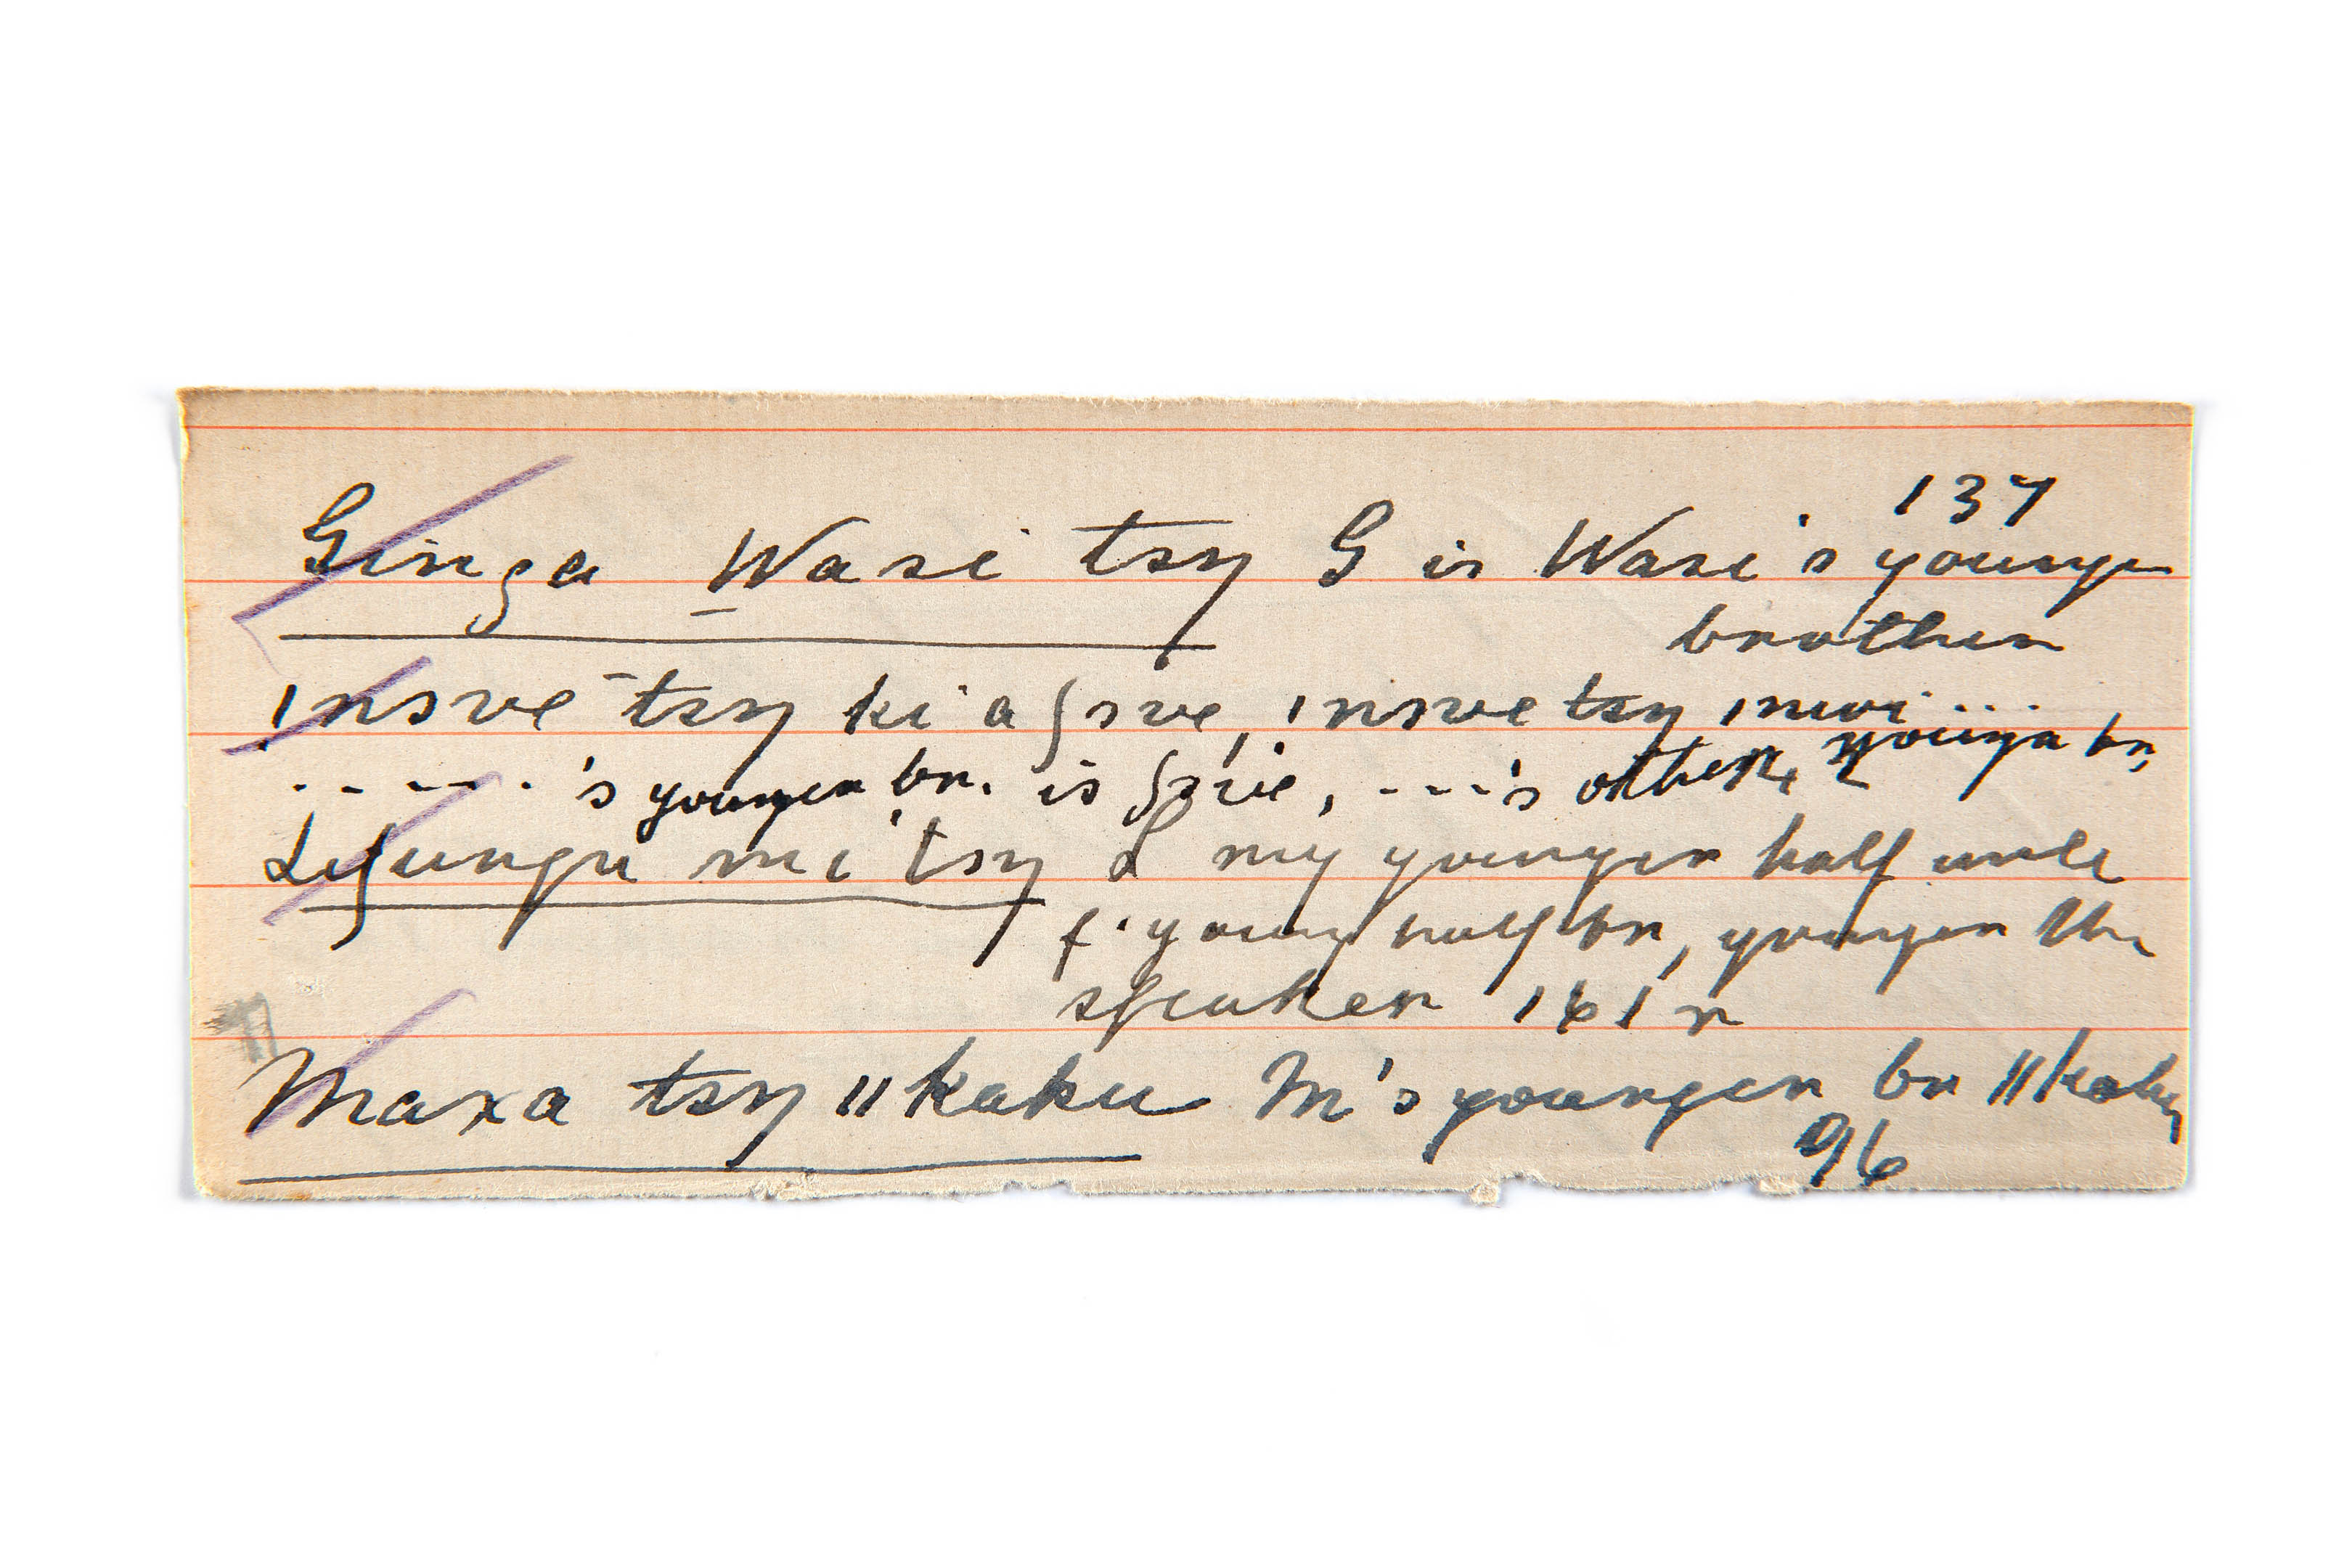 137
Ginga Wasi tsŋ G is Wasi's younger
brother
ǀnsve tsŋ ki a ʃsve, ǀnsve tsŋ ǀnwi ...
- - - - - 's younger br. is ʃsve, - - - 's other, younger br,
Liʃungu mi tsŋ L my younger half uncle
f. young half br, younger the
speaker 161 r
Maxa tsŋ ǁkaku M's younger br ǁkaku
96